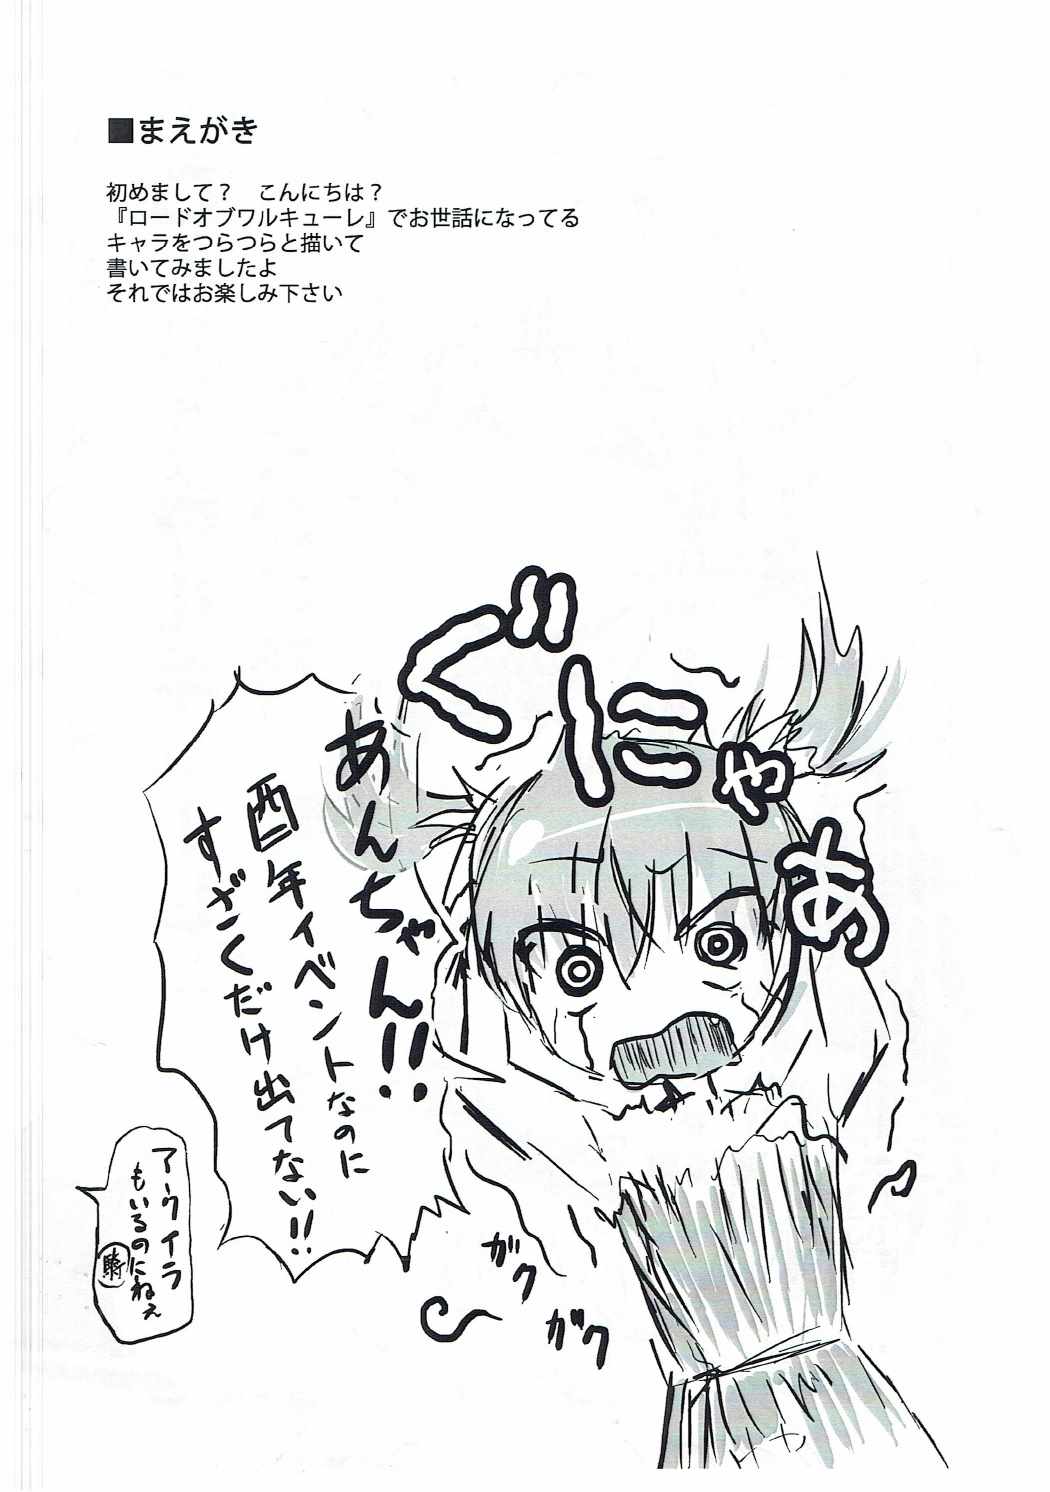 ■まえがき
初めまして？　こんにちは？
『ロードオブワルキューレ』でお世話になってる
キャラをつらつらと描いて
書いてみましたよ
それではお楽しみ下さい
ぐにゃあ
あんちゃん!!
酉年イベントなのに
すざくだけ出てない!!
ガク
ガク
アークイラ
もいるのにねぇ